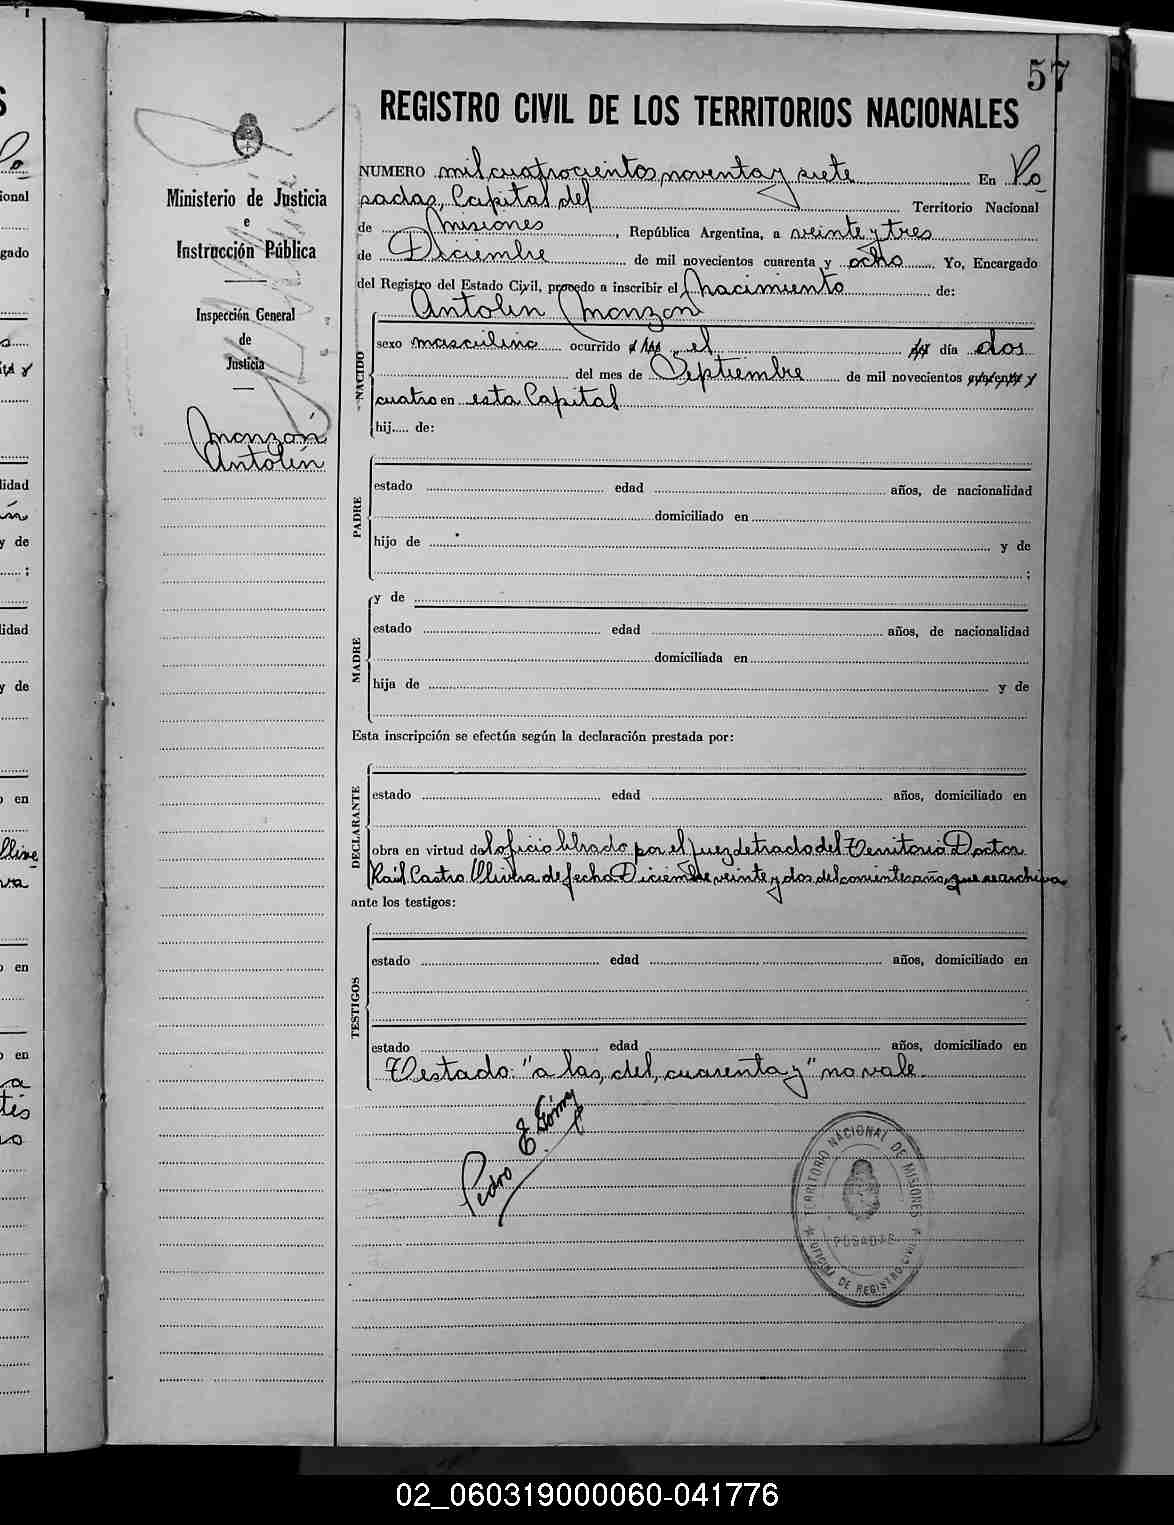 57
REGISTRO CIVIL DE LOS TERRITORIOS NACIONALES
Ministerio de Justicia
e
Instrucción Pública
Inspección General
de
Justicia
Monzón
Antolín
NUMERO mil cuatrocientos noventa y siete En Po
sadas, Capital del Territorio Nacional
de Misiones, República Argentina, a veinte y tres
de Diciembre de mil novecientos cuarenta y ocho. Yo, Encargado
del Registro del Estado Civil, procedo a inscribir el nacimiento de:
Antolín Monzón
NACIDO
sexo masculino ocurrido a las el del día dos
del mes de Septiembre de mil novecientos cuarenta y
cuatro en esta Capital
hij de:
PADRE
estado edad años, de nacionalidad
domiciliado en
hijo de y de
;
MADRE
y de
estado edad años, de nacionalidad
domiciliada en
hija de y de
Esta inscripción se efectúa según la declaración prestada por:
DECLARANTE
estado edad años, domiciliado en
obra en virtud del oficio librado por el juez letrado del Territorio Doctor
Raúl Castro Olivera de fecha Diciembre veinte y dos del corriente año, que se archiva
ante los testigos:
TESTIGOS
estado edad años, domiciliado en
estado edad años, domiciliado en
Testado: "a las, del, cuarenta y" no vale.
Pedro E Gómez
TERRITORIO NACIONAL DE MISIONES
POSADAS
OFICINA DE REGISTRO CIVIL
02_060319000060-041776